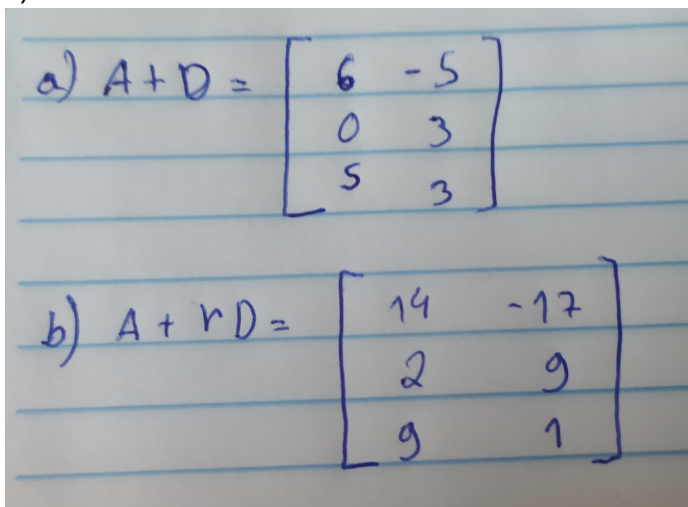 a) A + D = [ 6 -5
0 3
5 3 ]
b) A + rD = [ 14 -17
2 9
9 1 ]